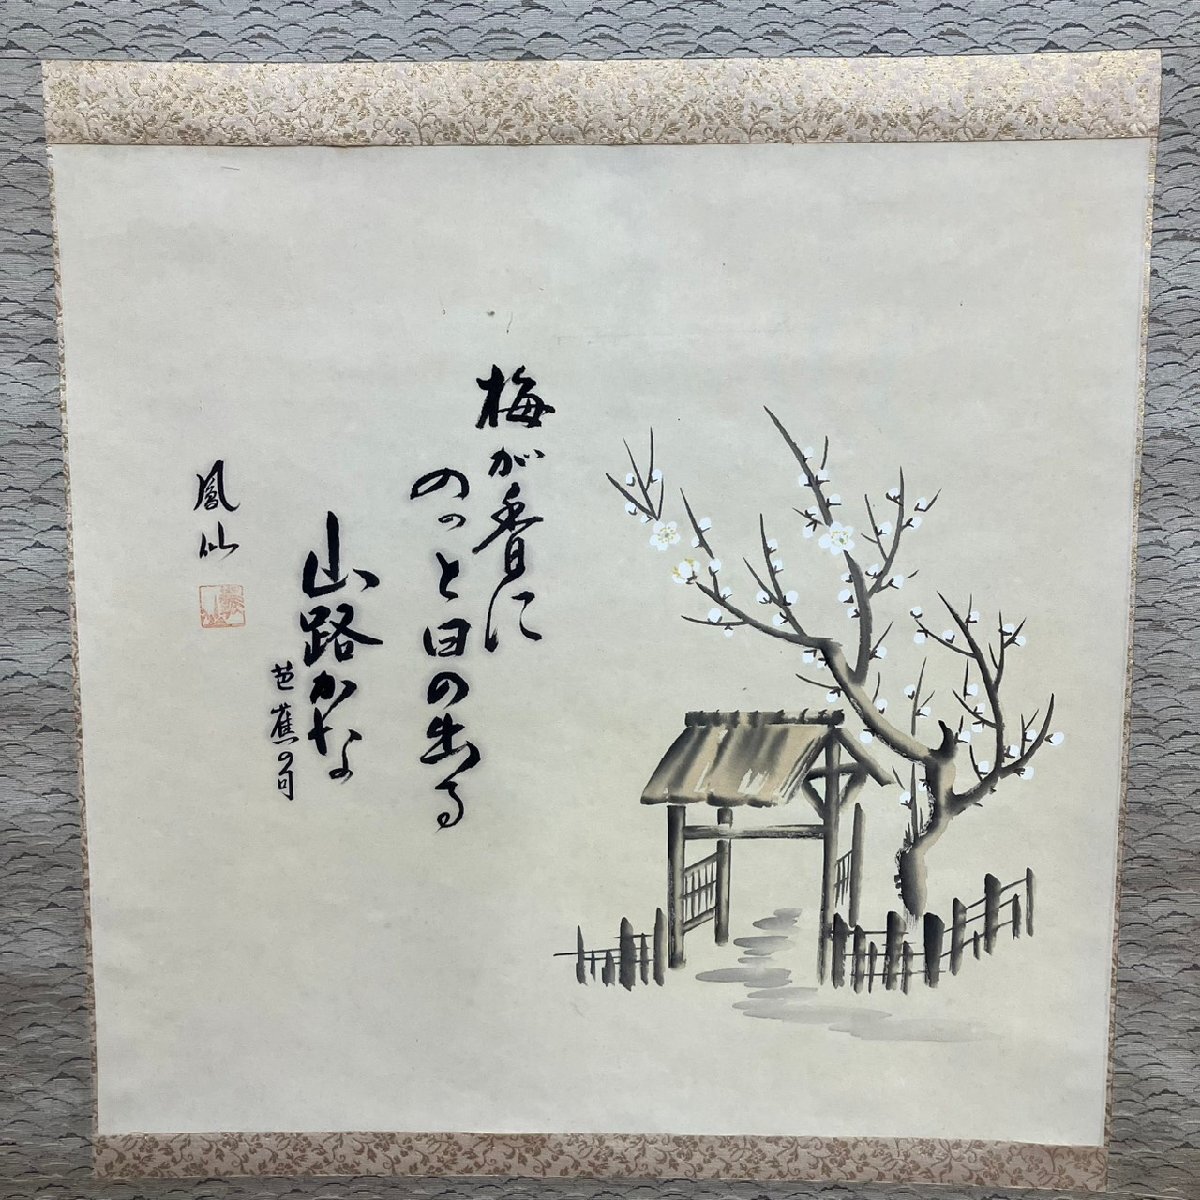 梅が香に
のっと日の出る
山路かな
芭蕉の句
鳳仙